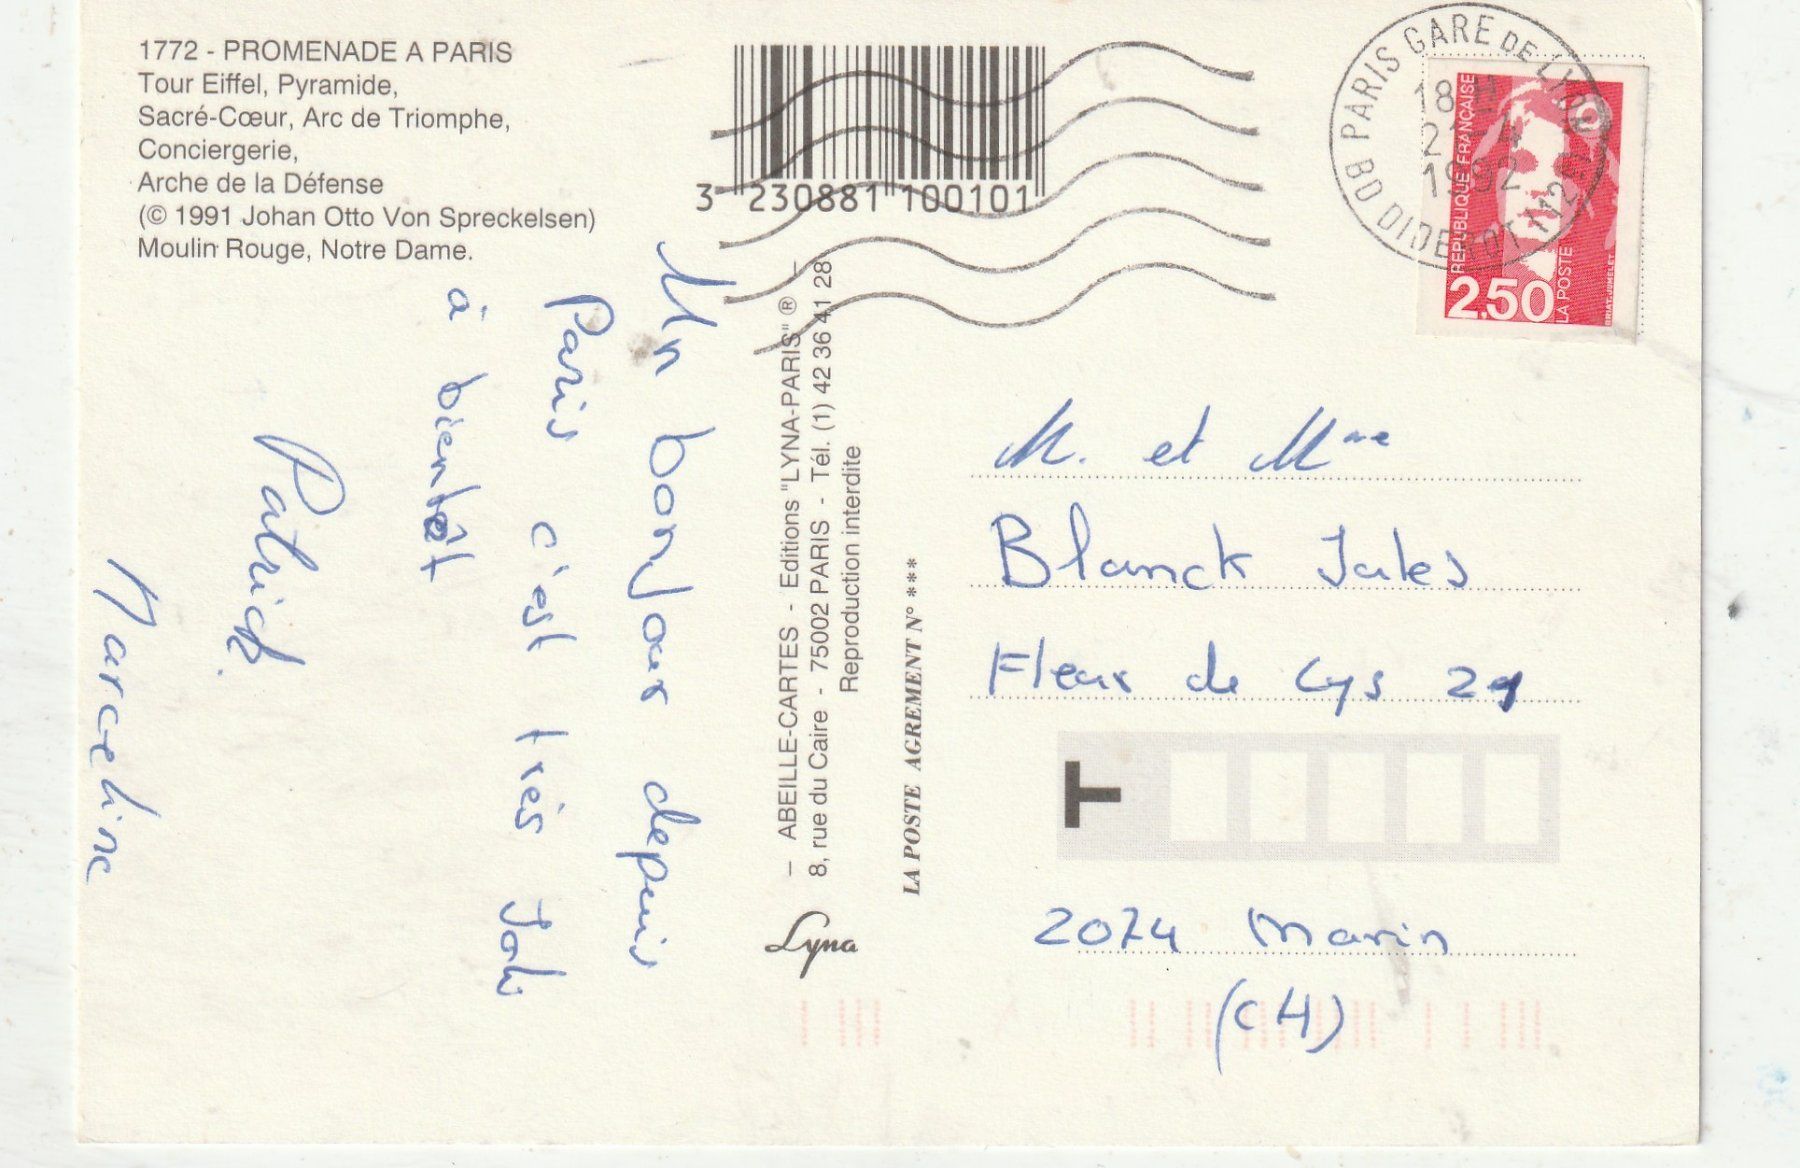 1772 - PROMENADE A PARIS
Tour Eiffel, Pyramide,
Sacré-Cœur, Arc de Triomphe,
Conciergerie,
Arche de la Défense
(© 1991 Johan Otto Von Spreckelsen)
Moulin Rouge, Notre Dame.
3 230881 100101
Un bonjour depuis
Paris c'est très Joli
à bientôt
Patrick
Marceline
– ABEILLE-CARTES - Editions "LYNA-PARIS" ® –
8, rue du Caire - 75002 PARIS - Tél. (1) 42 36 41 28
Reproduction interdite
LA POSTE AGREMENT N° ***
Lyna
PARIS GARE DE LYON
18
1992
08 DIDEROT (12E)
REPUBLIQUE FRANÇAISE
2.50
LA POSTE
M. et Mme
Blanck Jules
Fleur de Lys 29
T
2074 Marin
(CH)